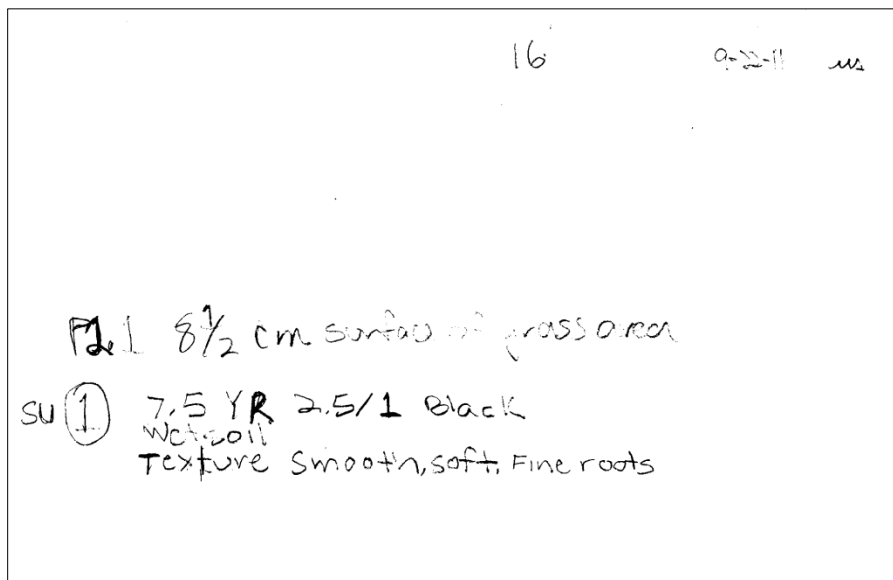 16 9-22-11
8 1/2 cm surface of grass area
SU 1 7.5 YR 2.5/1 Black
Wet soil
Texture Smooth, soft, Fine roots